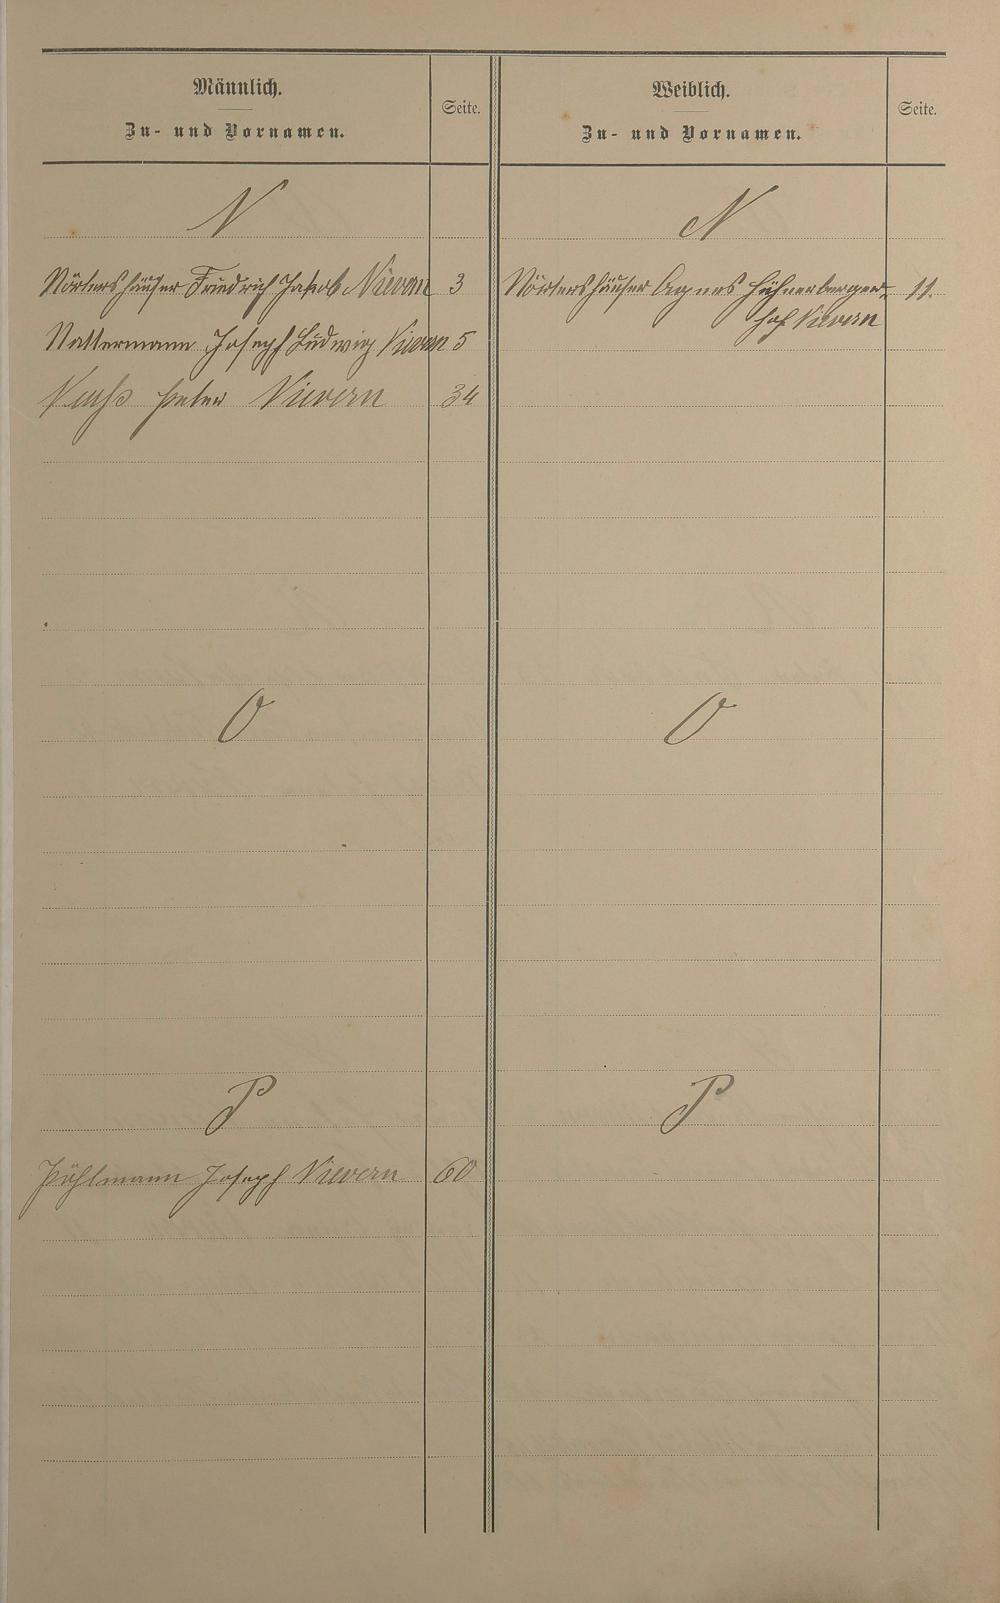 Männlich.
Zu- und Vornamen.
Seite.
Weiblich.
Zu- und Vornamen.
Seite.
N
N
Nörtershäuser Friedrich Jakob Nievern 3
Nörtershäuser Agnes Hühnerberger- 11.
hof Nievern
Nattermann Joseph Ludwig Nievern 5
Peter Nievern 34
O
O
P
P
Pöhlmann Joseph Nievern 60